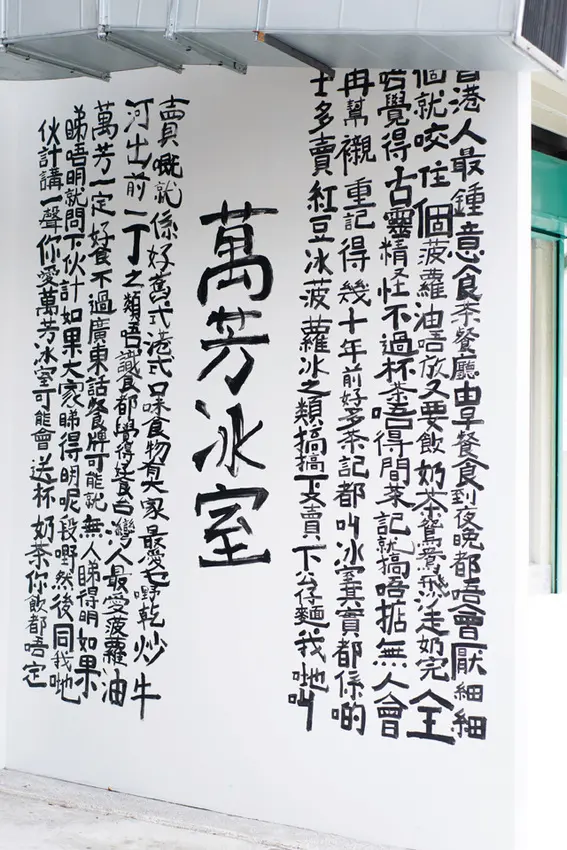 香港人最鍾意食茶餐廳由早餐食到夜晚都唔會厭細細
個就咬住個菠蘿油唔放又要飲奶茶鴛鴦飛沙走奶完全
唔覺得古靈精怪不過杯茶唔得間茶記就搞唔掂無人會
再幫襯重記得幾十年前好多茶記都叫冰室其實都係啲
士多賣紅豆冰菠蘿冰之類搞搞下又賣下公仔麵我哋叫
萬芳冰室
賣嘅就係好舊式港式口味食物有大家最愛乜嘢乾炒牛
河出前一丁之類唔識食都覺得好食台灣人最愛菠蘿油
萬芳一定好食不過廣東話餐牌可能就無人睇得明如果
睇唔明就問下伙計如果大家睇得明呢段嘢然後同我哋
伙計講一聲你愛萬芳冰室可能會送杯奶茶你飲都唔定